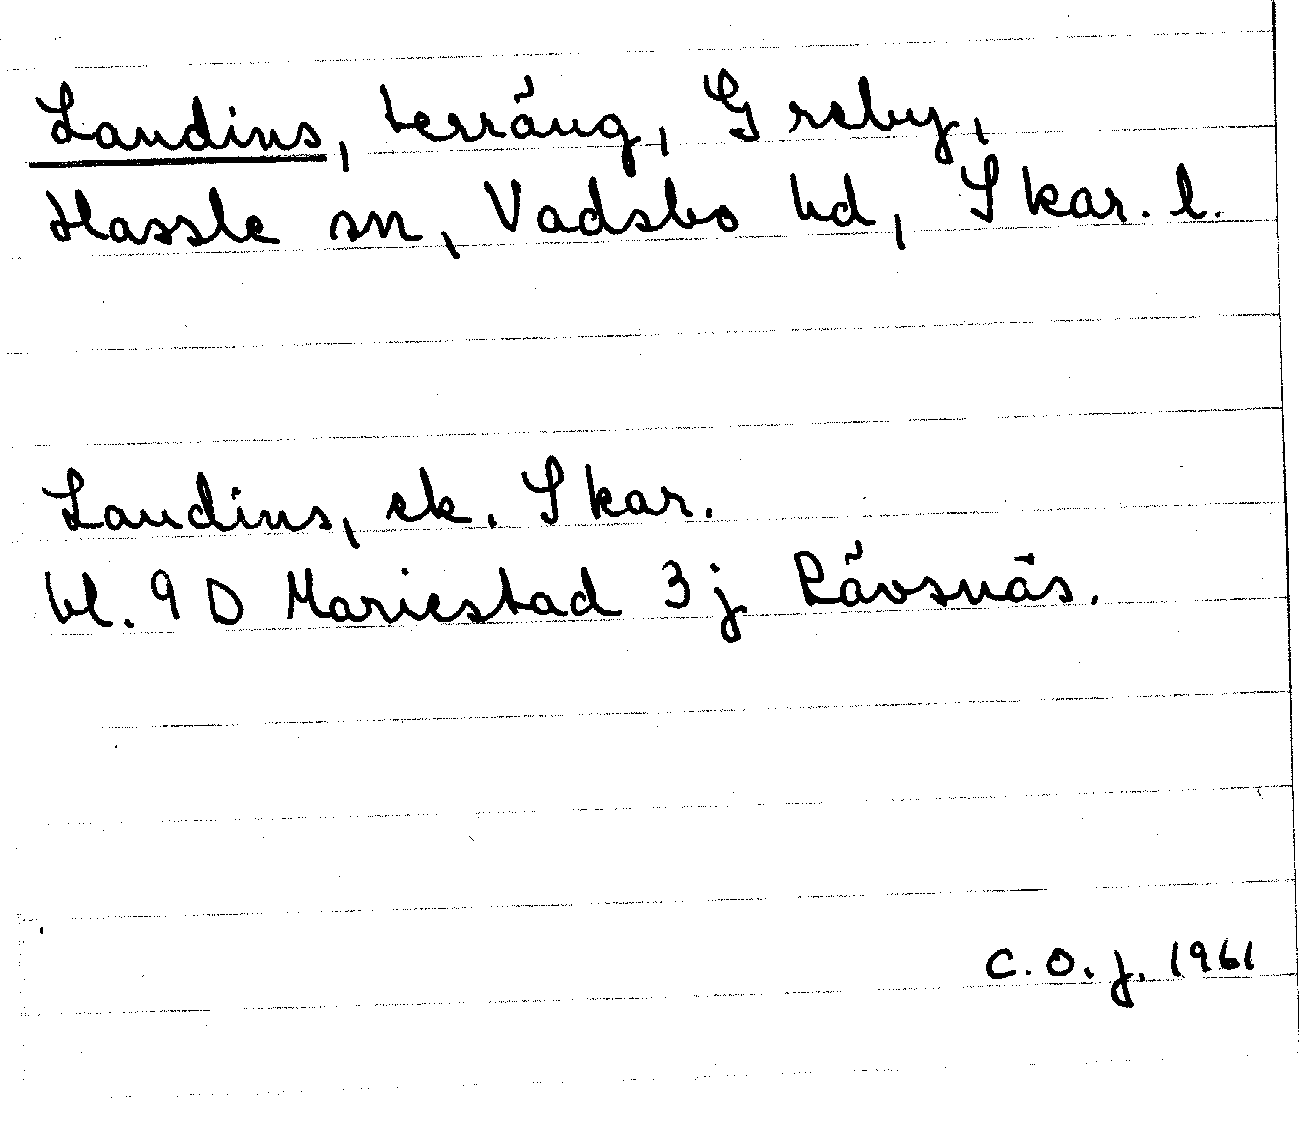 Landins, terräng, Greby,
Hassle sn, Vadsbo hd, Skar. l.
Landins, ek. Skar.
bl. 9 D Mariestad 3 j Rävsnäs.
C. O. J. 1961